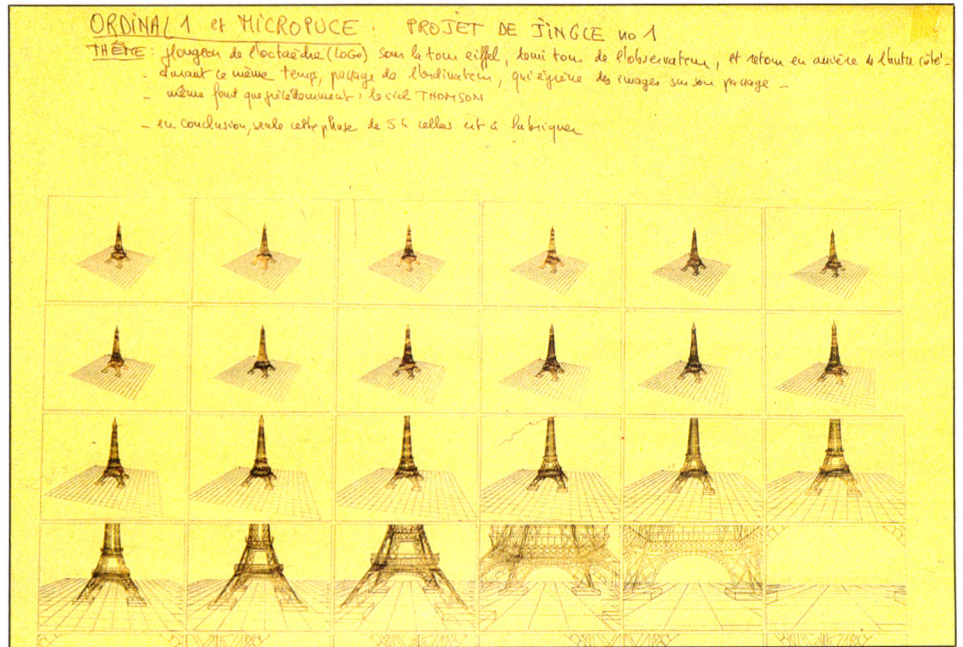 ORDINAL 1 et MICROPUCE : PROJET DE JINGLE no 1
THÈME : plongeon de l'octaèdre (LOGO) sous la tour eiffel, demi tour de l'observateur, et retour en arrière de l'autre côté -
- durant ce même temps, passage de l'ordinateur, qui égrène des images sur son passage -
- même fond que précédemment : le ciel THOMSON
- en conclusion, seule cette phase de 54 celles est à fabriquer